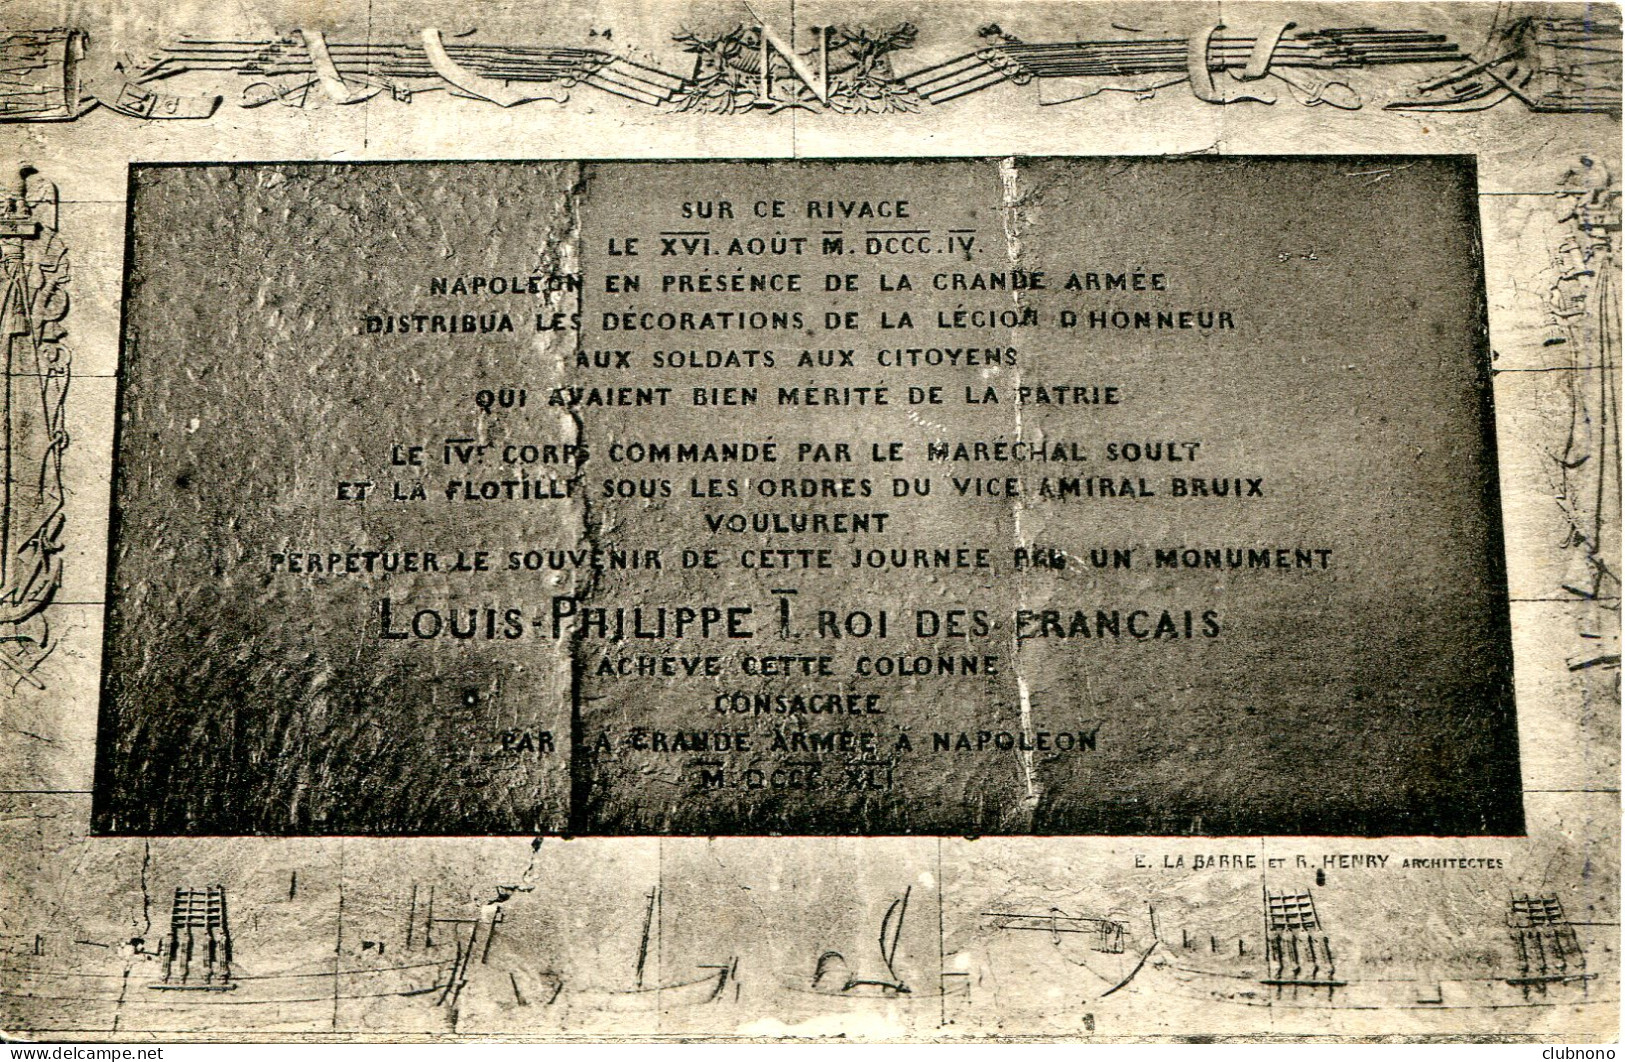 N
SUR CE RIVAGE
LE XVI. AOÛT M. DCCC.IV.
NAPOLÉON EN PRÉSÉNCE DE LA GRANDE ARMÉE
DISTRIBUA LES DÉCORATIONS DE LA LÉGION D'HONNEUR
AUX SOLDATS AUX CITOYENS
QUI AVAIENT BIEN MÉRITÉ DE LA PATRIE
LE IVE CORPS COMMANDÉ PAR LE MARÉCHAL SOULT
ET LA FLOTILLE SOUS LES ORDRES DU VICE AMIRAL BRUIX
VOULURENT
PERPÉTUER LE SOUVENIR DE CETTE JOURNÉE PAR UN MONUMENT
LOUIS-PHILIPPE I. ROI DES FRANÇAIS
ACHÈVE CETTE COLONNE
CONSACRÉE
PAR LA GRANDE ARMÉE À NAPOLÉON
M. DCCC. XLI
E. LA BARRE ET R. HENRY ARCHITECTES
delcampe.net
clubnono